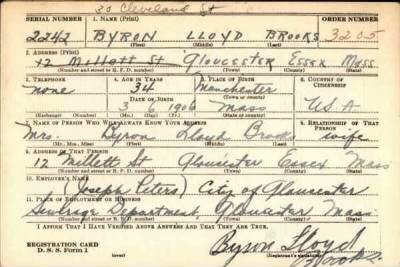 30 Cleveland St
SERIAL NUMBER 1. NAME (Print) ORDER NUMBER
BYRON LLOYD BROOKS 3205
(First) (Middle) (Last)
2. ADDRESS (Print)
12 Millett St Gloucester Essex Mass
(Number and street or R. F. D. number) (Town) (County) (State)
3. TELEPHONE 4. AGE IN YEARS 5. PLACE OF BIRTH 6. COUNTRY OF CITIZENSHIP
none 34 Manchester
DATE OF BIRTH (Town or county)
3 6 1906 Mass U.S.A
(Mo.) (Day) (Yr.) (State or country)
7. NAME OF PERSON WHO WILL ALWAYS KNOW YOUR ADDRESS 8. RELATIONSHIP OF THAT PERSON
Mrs. Byron Lloyd Brooks wife
(Mr., Mrs., Miss) (First) (Middle) (Last)
9. ADDRESS OF THAT PERSON
12 Millett St Gloucester Essex Mass
(Number and street or R. F. D. number) (Town) (County) (State)
10. EMPLOYER'S NAME
(Joseph Peters) City of Gloucester
11. PLACE OF EMPLOYMENT OR BUSINESS
Sewerage Department, Gloucester Mass
(Number and street or R. F. D. number) (Town) (County) (State)
I AFFIRM THAT I HAVE VERIFIED ABOVE ANSWERS AND THAT THEY ARE TRUE.
REGISTRATION CARD
D. S. S. Form 1 (over) Byron Lloyd
Brooks
(Registrant's signature)